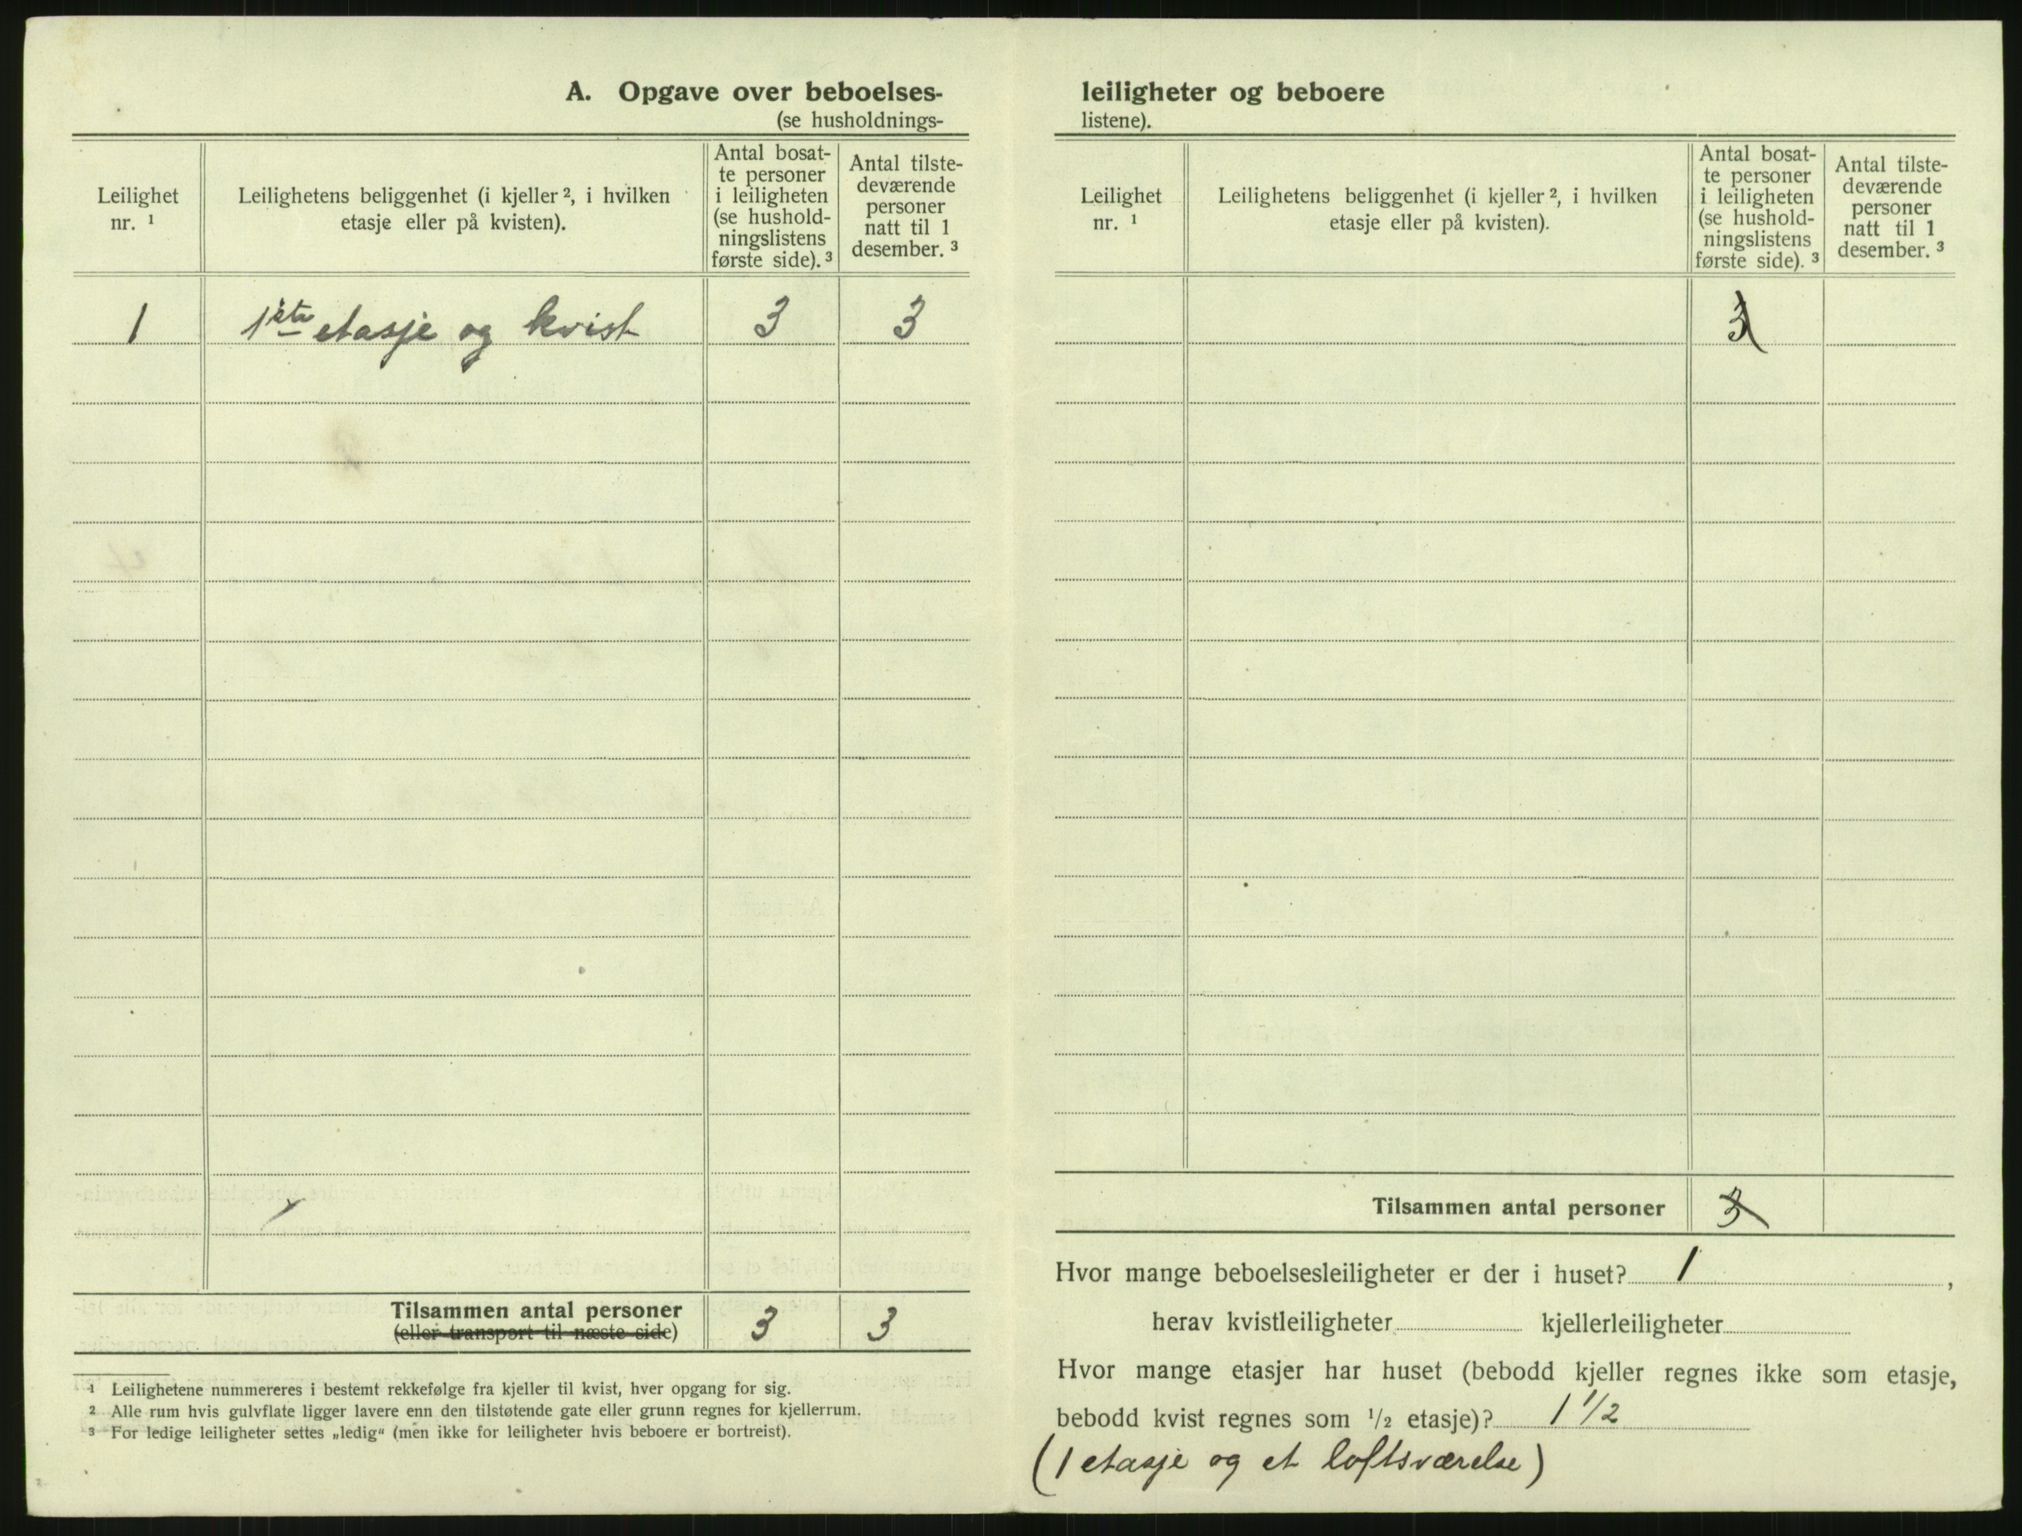 A. Opgave over beboelses-
(se husholdnings-
Leilighet
nr. ¹
Leilighetens beliggenhet (i kjeller ², i hvilken
etasje eller på kvisten).
Antal bosat-
te personer
i leiligheten
(se hushold-
ningslistens
første side). ³
Antal tilste-
deværende
personer
natt til 1
desember. ³
1 1ste etasje og kvist 3 3
Tilsammen antal personer 3 3
(eller transport til næste side)
¹ Leilighetene nummereres i bestemt rekkefølge fra kjeller til kvist, hver opgang for sig.
² Alle rum hvis gulvflate ligger lavere enn den tilstøtende gate eller grunn regnes for kjellerrum.
³ For ledige leiligheter settes „ledig“ (men ikke for leiligheter hvis beboere er bortreist).
leiligheter og beboere
listene).
Leilighet
nr. ¹
Leilighetens beliggenhet (i kjeller ², i hvilken
etasje eller på kvisten).
Antal bosat-
te personer
i leiligheten
(se hushold-
ningslistens
første side). ³
Antal tilste-
deværende
personer
natt til 1
desember. ³
3
Tilsammen antal personer 3
Hvor mange beboelsesleiligheter er der i huset? 1 ,
herav kvistleiligheter kjellerleiligheter
Hvor mange etasjer har huset (bebodd kjeller regnes ikke som etasje,
bebodd kvist regnes som ½ etasje)? 1 1/2
(1 etasje og et loftsværelse)